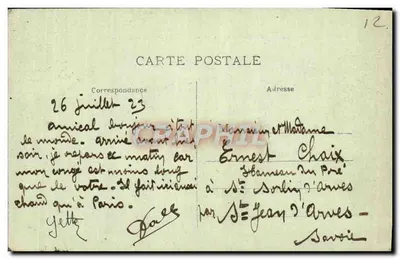 12
CARTE POSTALE
Correspondance
Adresse
26 juillet 23
amical bonjour à tout
le monde. arrivé hier
soir. je repars ce matin car
mon congé est moins long
que le votre. Il fait
chaud qu'à Paris.
Monsieur et Madame
Ernest Chaix
Hameau du Pré
à St Sorlin d'Arves
par St Jean d'Arves
Savoie